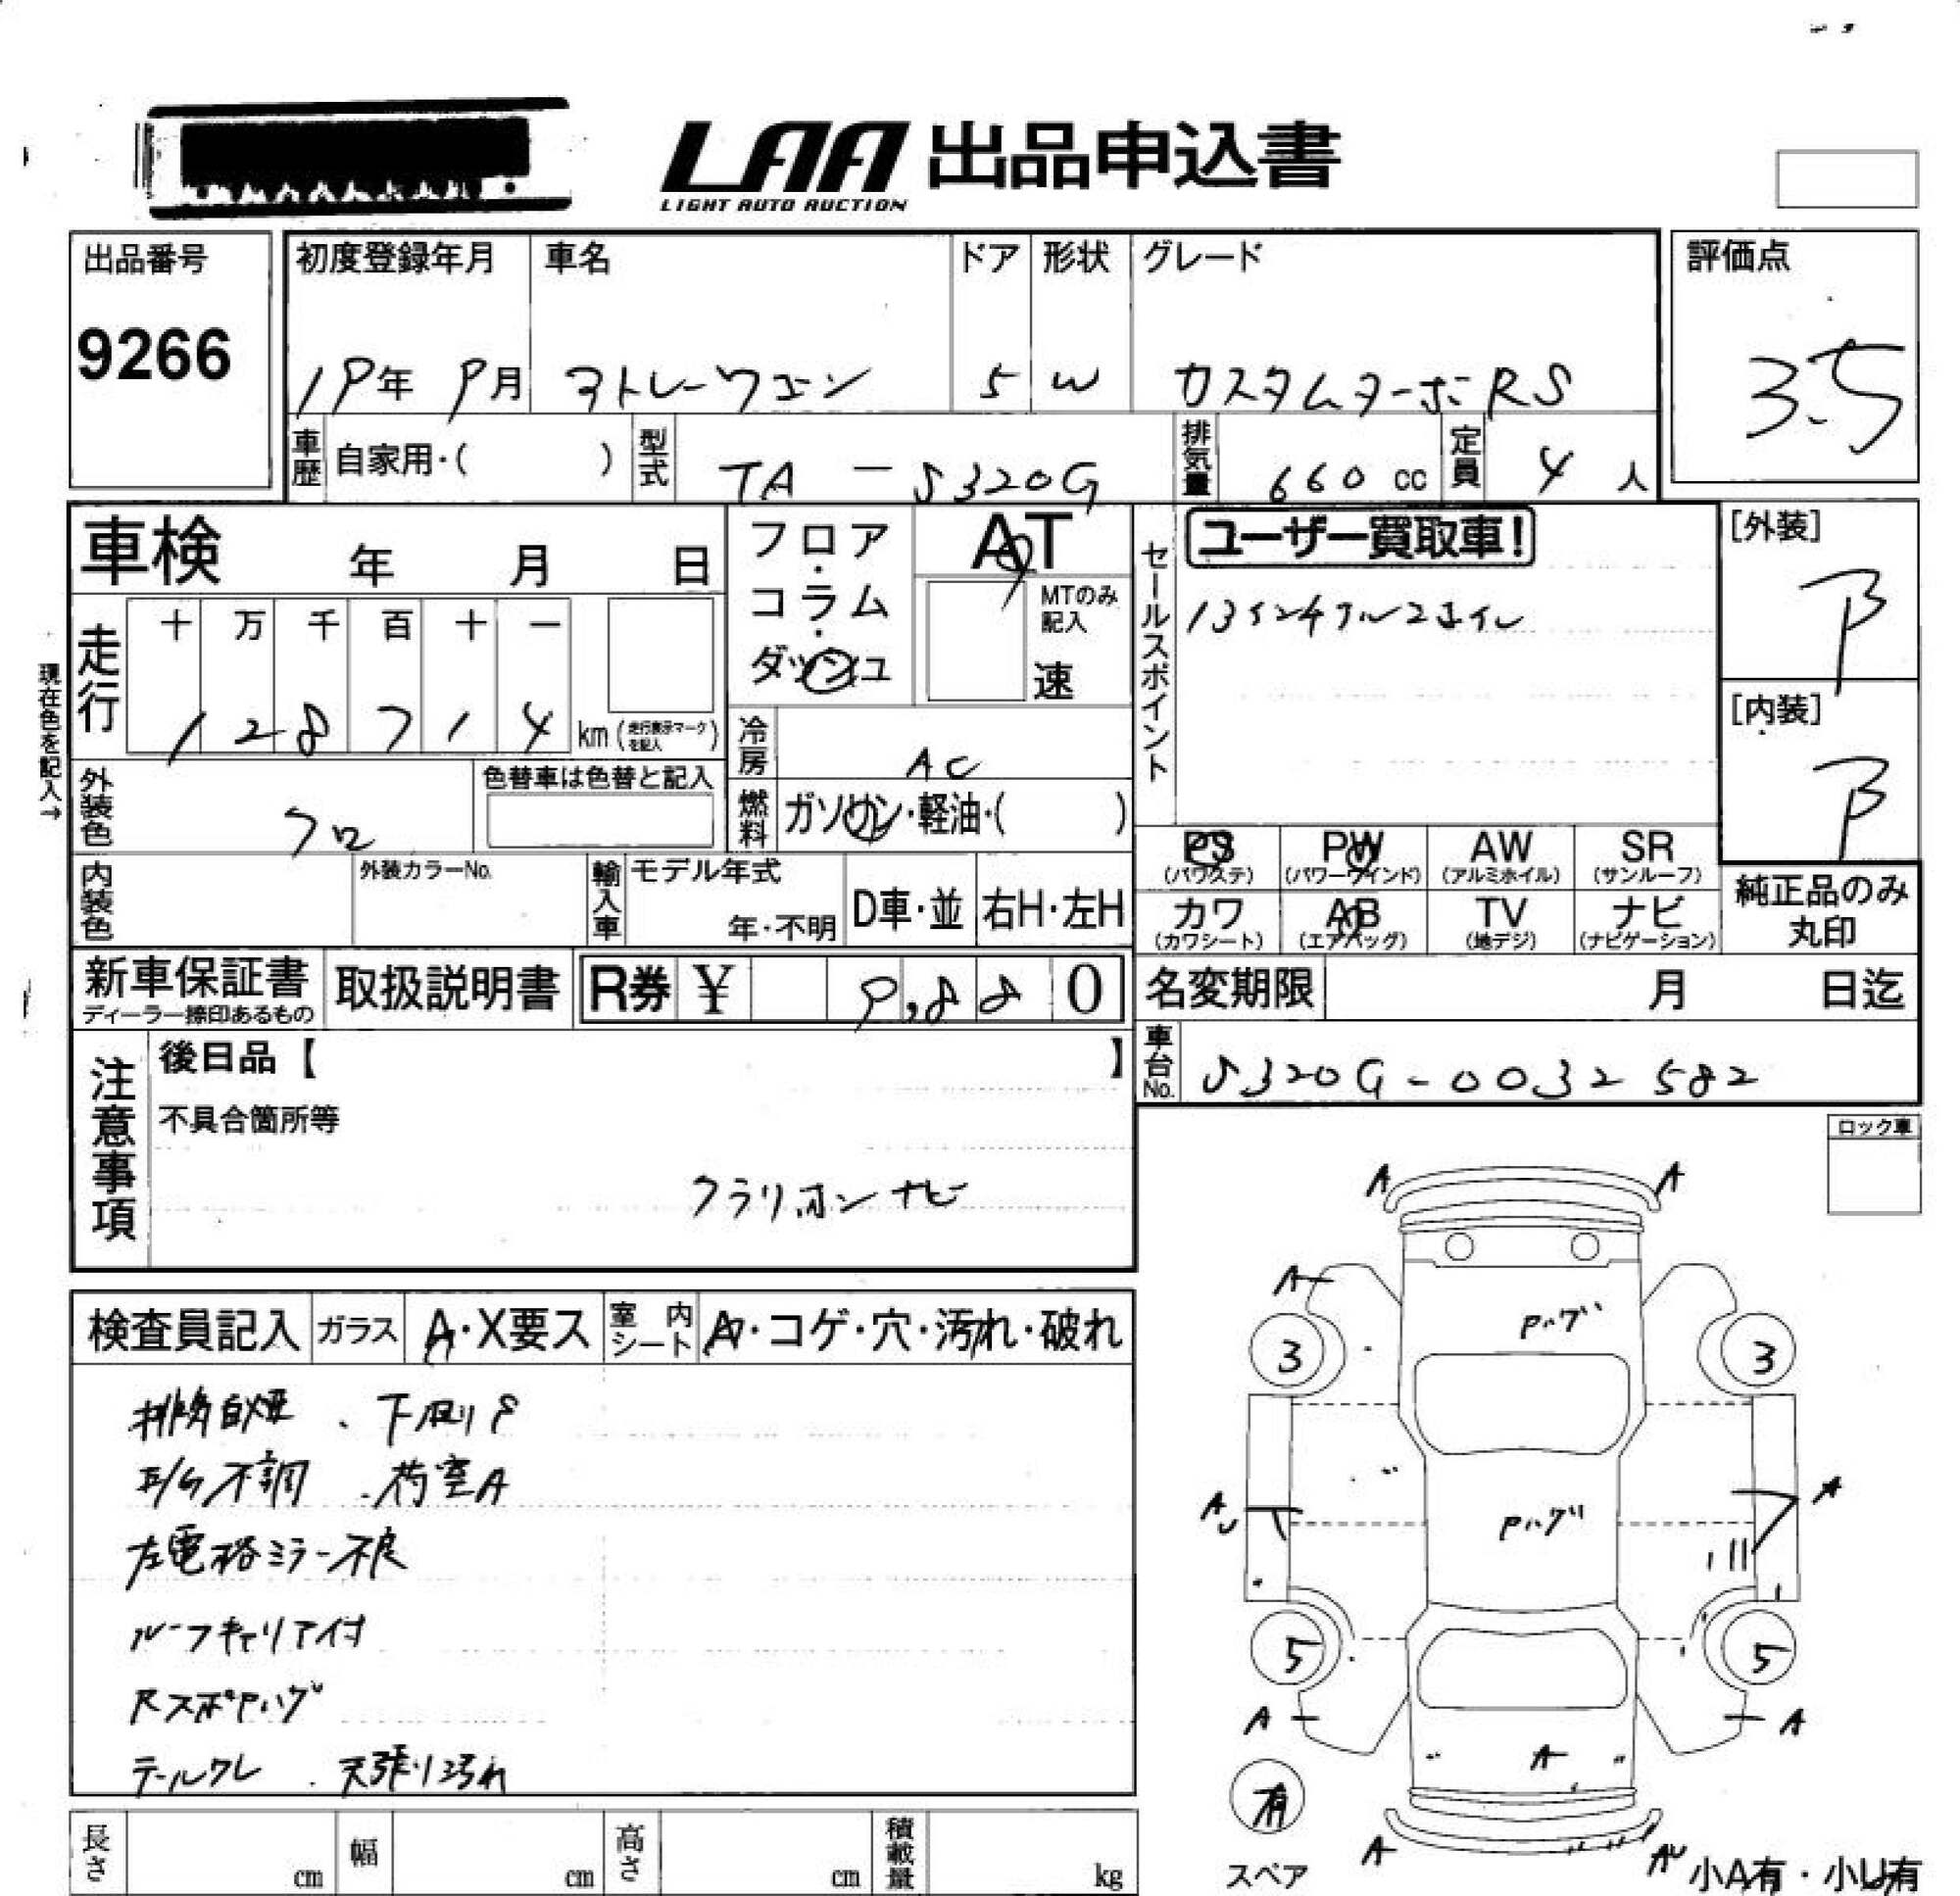 LAA 出品申込書
LIGHT AUTO AUCTION
出品番号
9266
初度登録年月
19年 9月
車名
アトレーワゴン
ドア
5
形状
W
グレード
カスタムターボRS
評価点
3.5
車歴
自家用・( )
型式
TA - S320G
排気量
660 cc
定員
4 人
車検 年 月 日
フロア・コラム・ダッシュ
AT
MTのみ記入
速
セールスポイント
ユーザー買取車!
[外装]
B
[内装]
B
現在色を記入→
走行
十 万 千 百 十 一
1 2 8 7 1 4 km (走行表示マークを記入)
冷房
AC
外装色
クロ
色替車は色替と記入
燃料
ガソリン・軽油・( )
PS (パワステ)
PW (パワーウインド)
AW (アルミホイル)
SR (サンルーフ)
カワ (カワシート)
AB (エアバッグ)
TV (地デジ)
ナビ (ナビゲーション)
純正品のみ丸印
内装色
外装カラーNo.
輸入車
モデル年式
年・不明
D車・並
右H・左H
新車保証書
ディーラー捺印あるもの
取扱説明書
R券 ¥ 9,880
名変期限 月 日迄
車台No.
S320G-0032582
注意事項
後日品【 】
不具合箇所等
クラリオンナビ
ロック車
検査員記入
ガラス
A・X要ス
室内シート
A・コゲ・穴・汚れ・破れ
排気白煙 . 下廻りS
E/G不調 . 荷室A
左電格ミラー不良
ルーフキャリア付
RスポPハゲ
テールワレ . 天張り汚れ
A A
A
Pハゲ
3 3
AU
Pハゲ
A
5 5
A
A
A
有
スペア
A
AU
小A有・小U有
長さ cm
幅 cm
高さ cm
積載量 kg